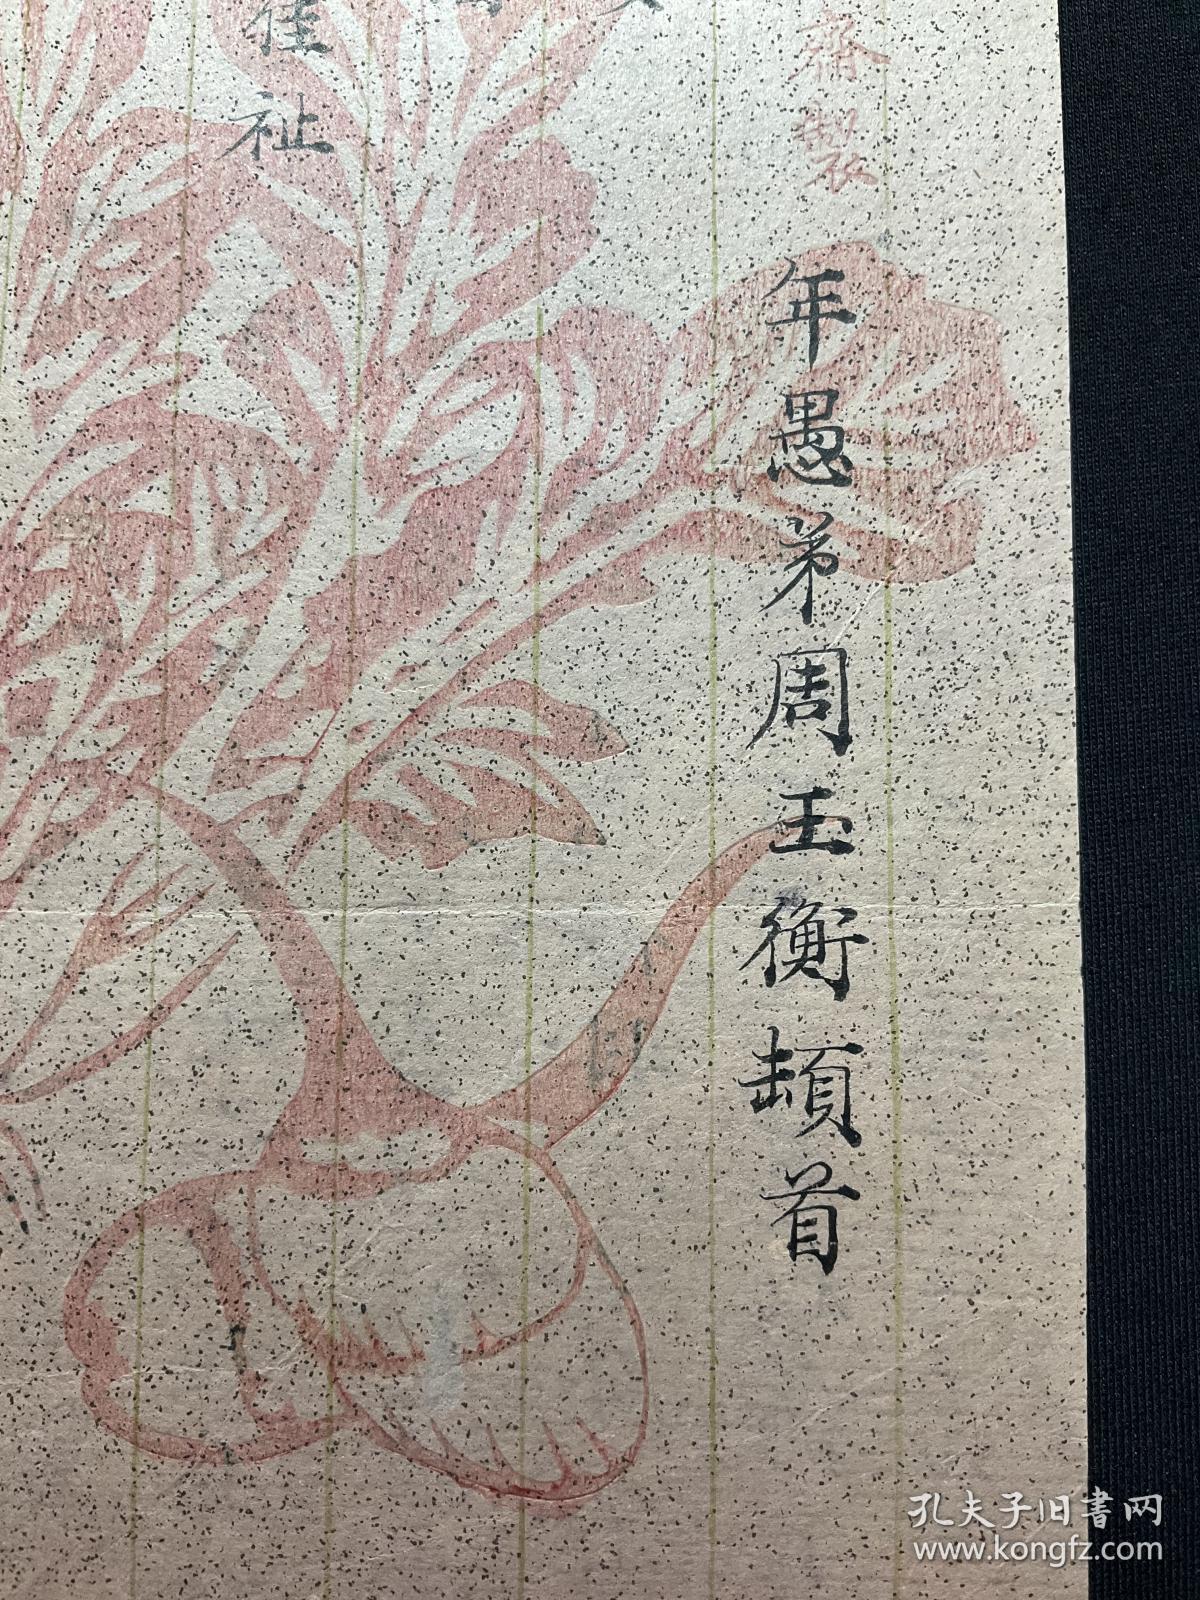 齋製
年愚弟周玉衡頓首
佳
祉
孔夫子旧書网
www.kongfz.com